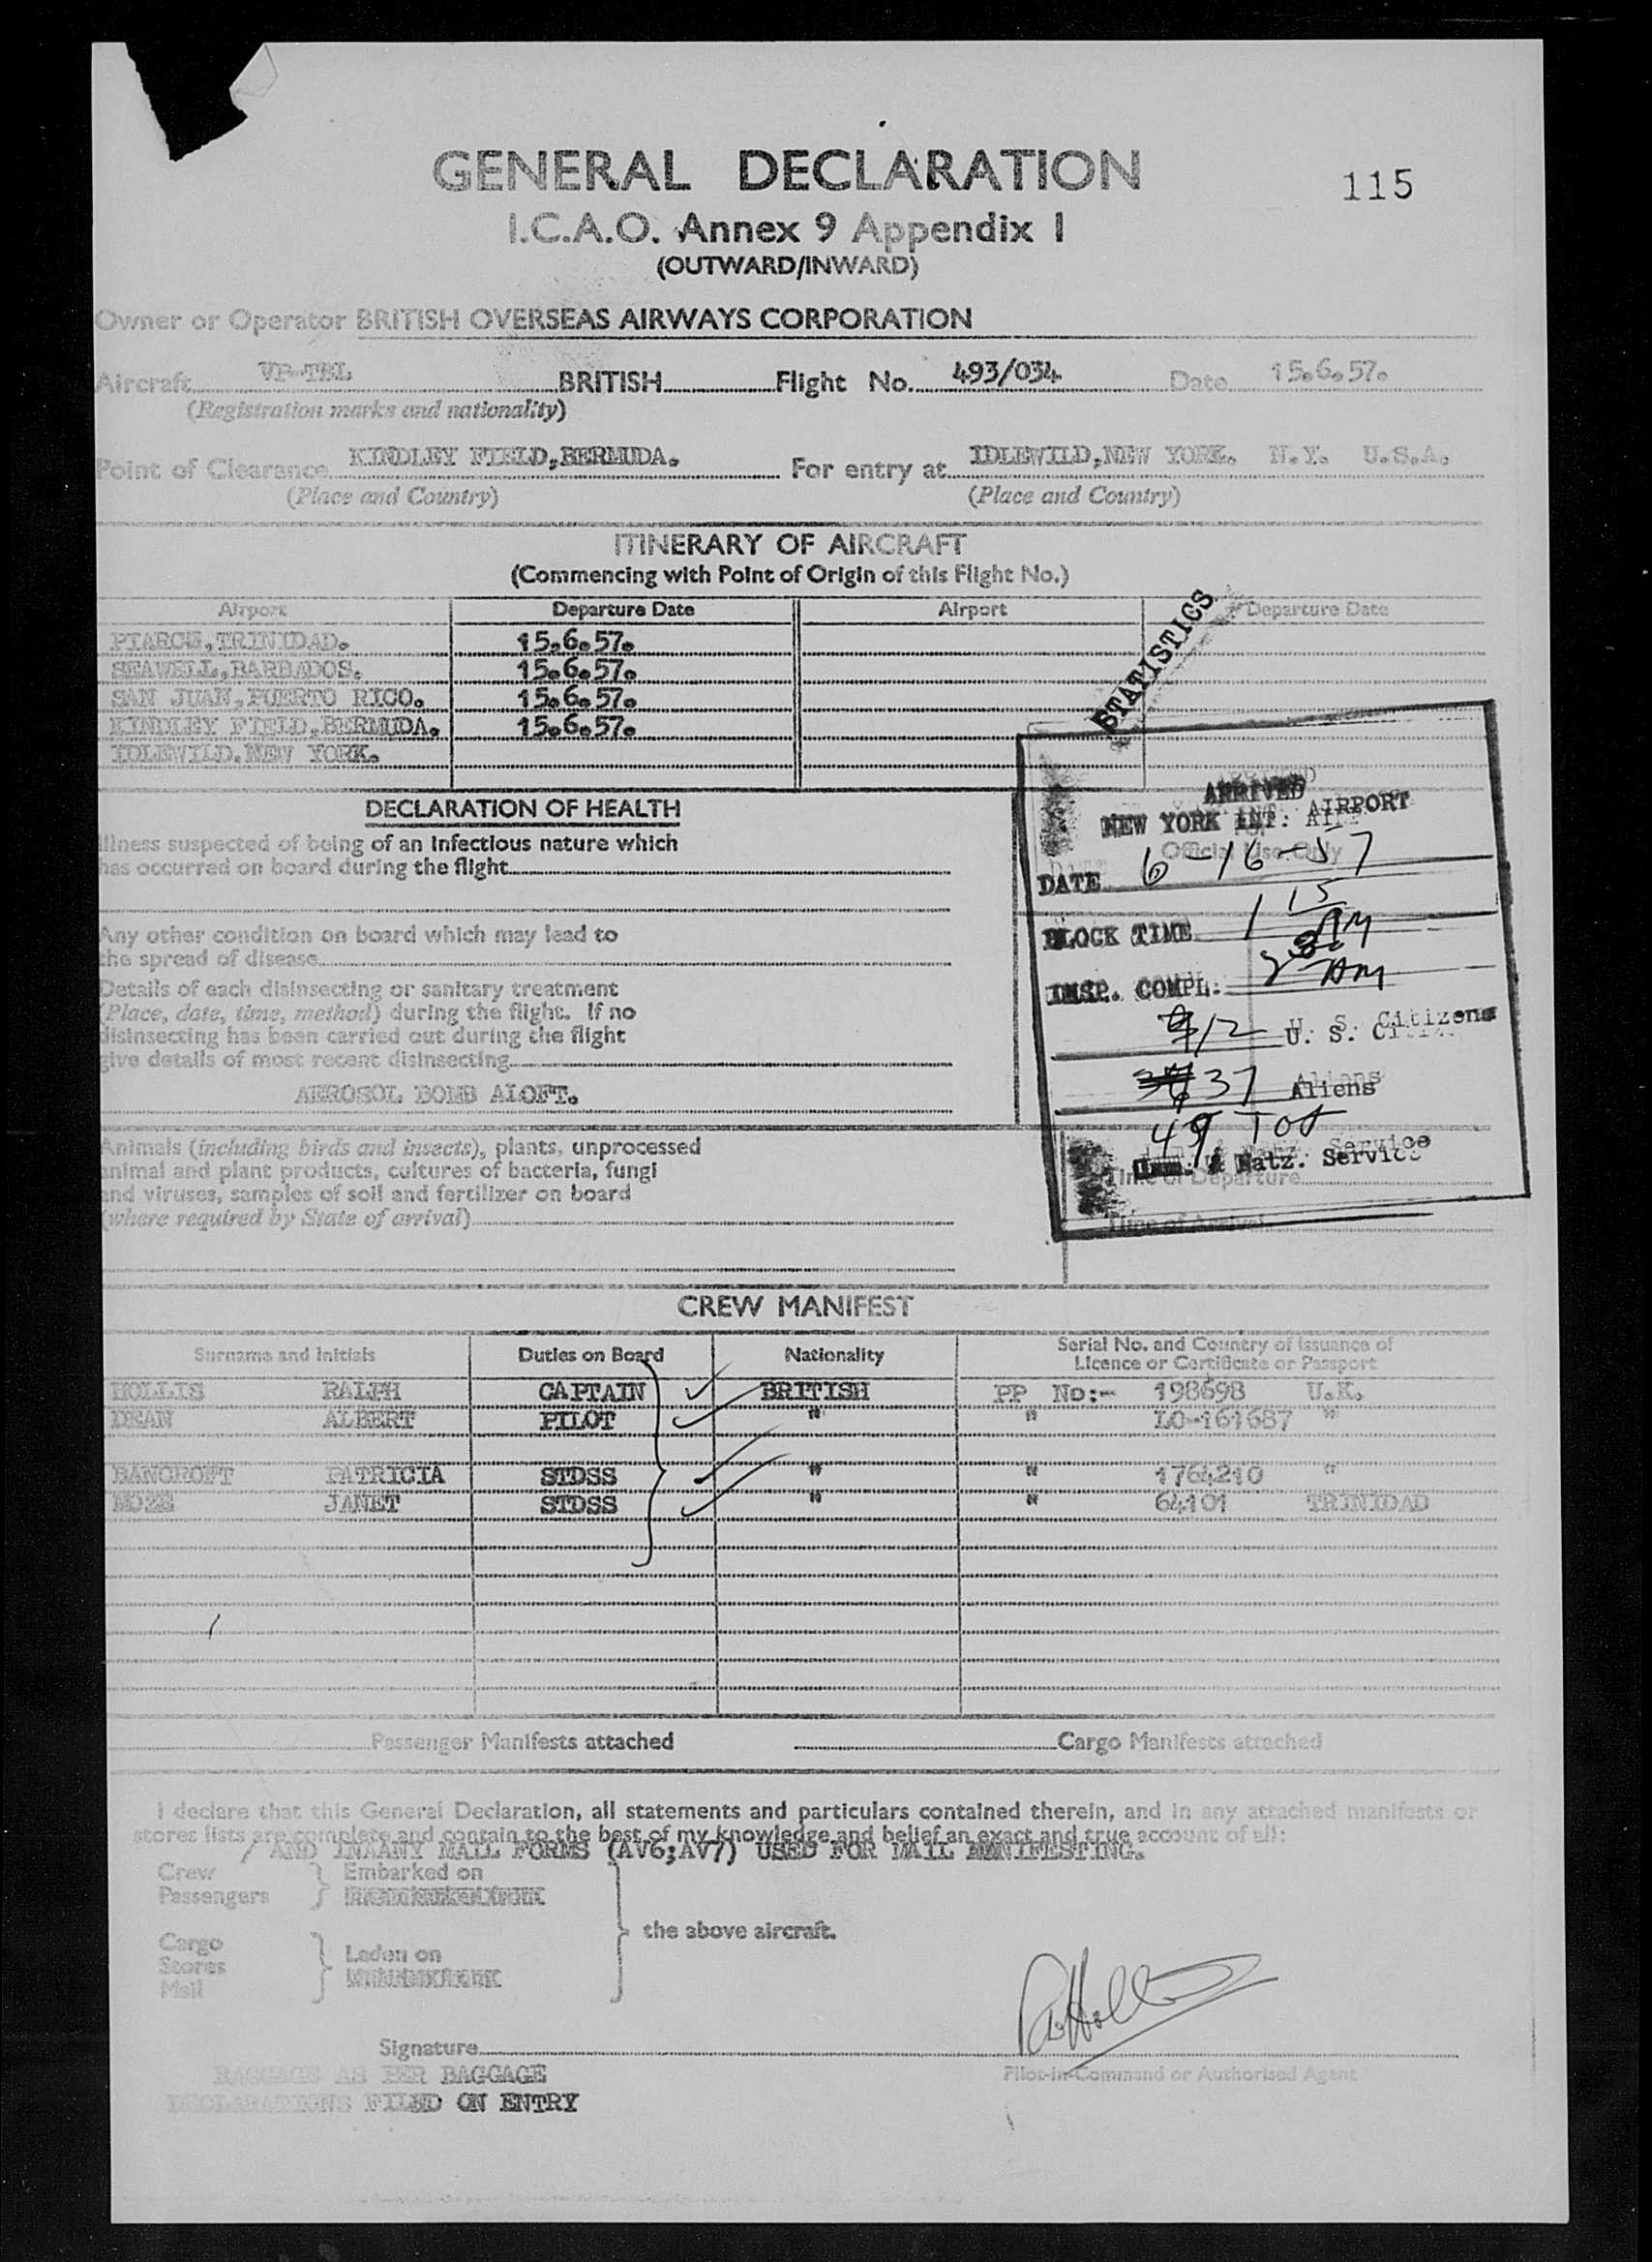 GENERAL DECLARATION
115
I.C.A.O. Annex 9 Appendix 1
(OUTWARD/INWARD)
Owner or Operator BRITISH OVERSEAS AIRWAYS CORPORATION
Aircraft VP-TBL BRITISH Flight No. 493/034 Date 15.6.57.
(Registration marks and nationality)
Point of Clearance KINDLEY FIELD,BERMUDA. For entry at IDLEWILD,NEW YORK. N.Y. U.S.A.
(Place and Country) (Place and Country)
ITINERARY OF AIRCRAFT
(Commencing with Point of Origin of this Flight No.)
Airport Departure Date Airport Departure Date
PIARCO,TRINIDAD. 15.6.57.
SEAWELL,BARBADOS. 15.6.57.
SAN JUAN,PUERTO RICO. 15.6.57.
KINDLEY FIELD,BERMUDA. 15.6.57.
IDLEWILD.NEW YORK.
STATISTICS
DECLARATION OF HEALTH
Illness suspected of being of an infectious nature which
has occurred on board during the flight
Any other condition on board which may lead to
the spread of disease
Details of each disinsecting or sanitary treatment
(Place, date, time, method) during the flight. If no
disinsecting has been carried out during the flight
give details of most recent disinsecting
AEROSOL BOMB ALOFT.
Animals (including birds and insects), plants, unprocessed
animal and plant products, cultures of bacteria, fungi
and viruses, samples of soil and fertilizer on board
(where required by State of arrival)
ARRIVED
NEW YORK INT: AIRPORT
Official Use Only
DATE 6-16-57
BLOCK TIME 1 15 AM
INSP. COMPL: 2 30 AM
12 U. S. Citizens
37 Aliens
49 Tot
Imm. & Natz. Service
Time of Departure
Time of Arrival
CREW MANIFEST
Surname and Initials Duties on Board Nationality Serial No. and Country of Issuance of
Licence or Certificate or Passport
HOLLIS RALPH CAPTAIN BRITISH PP No:- 198698 U.K.
DEAN ALBERT PILOT " " LO-161687 "
BANCROFT PATRICIA STDSS " " 1764210 "
JANET STDSS " " 64101 TRINIDAD
Passenger Manifests attached Cargo Manifests attached
I declare that this General Declaration, all statements and particulars contained therein, and in any attached manifests or
stores lists are complete and contain to the best of my knowledge and belief an exact and true account of all:
/ AND INAANY MAIL FORMS (AV6;AV7) USED FOR MAIL MANIFESTING.
Crew } Embarked on
Passengers
the above aircraft.
Cargo
Stores } Laden on
Mail
R. Hollis
Signature
Pilot-in-Command or Authorised Agent
BAGGAGE AS PER BAGGAGE
DECLARATIONS FILED ON ENTRY